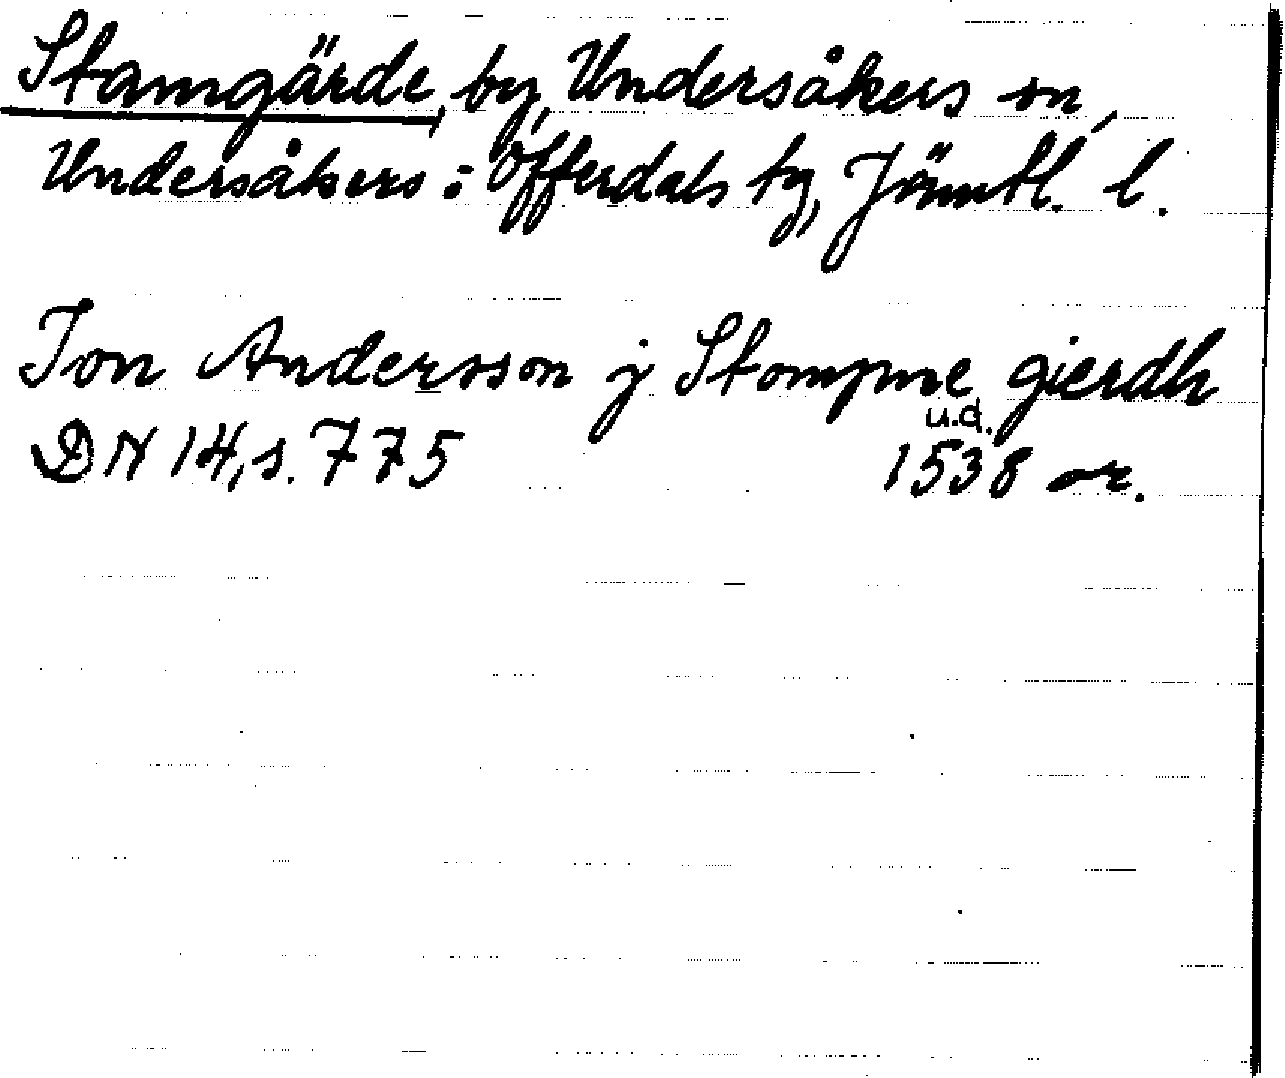 Stamgärde, by, Undersåkers sn,
Undersåkers o Offerdals tg, Jämtl. l.
Jon Andersson j Stompne gierdh
u.d.
DN 14, s. 775 1538 or.